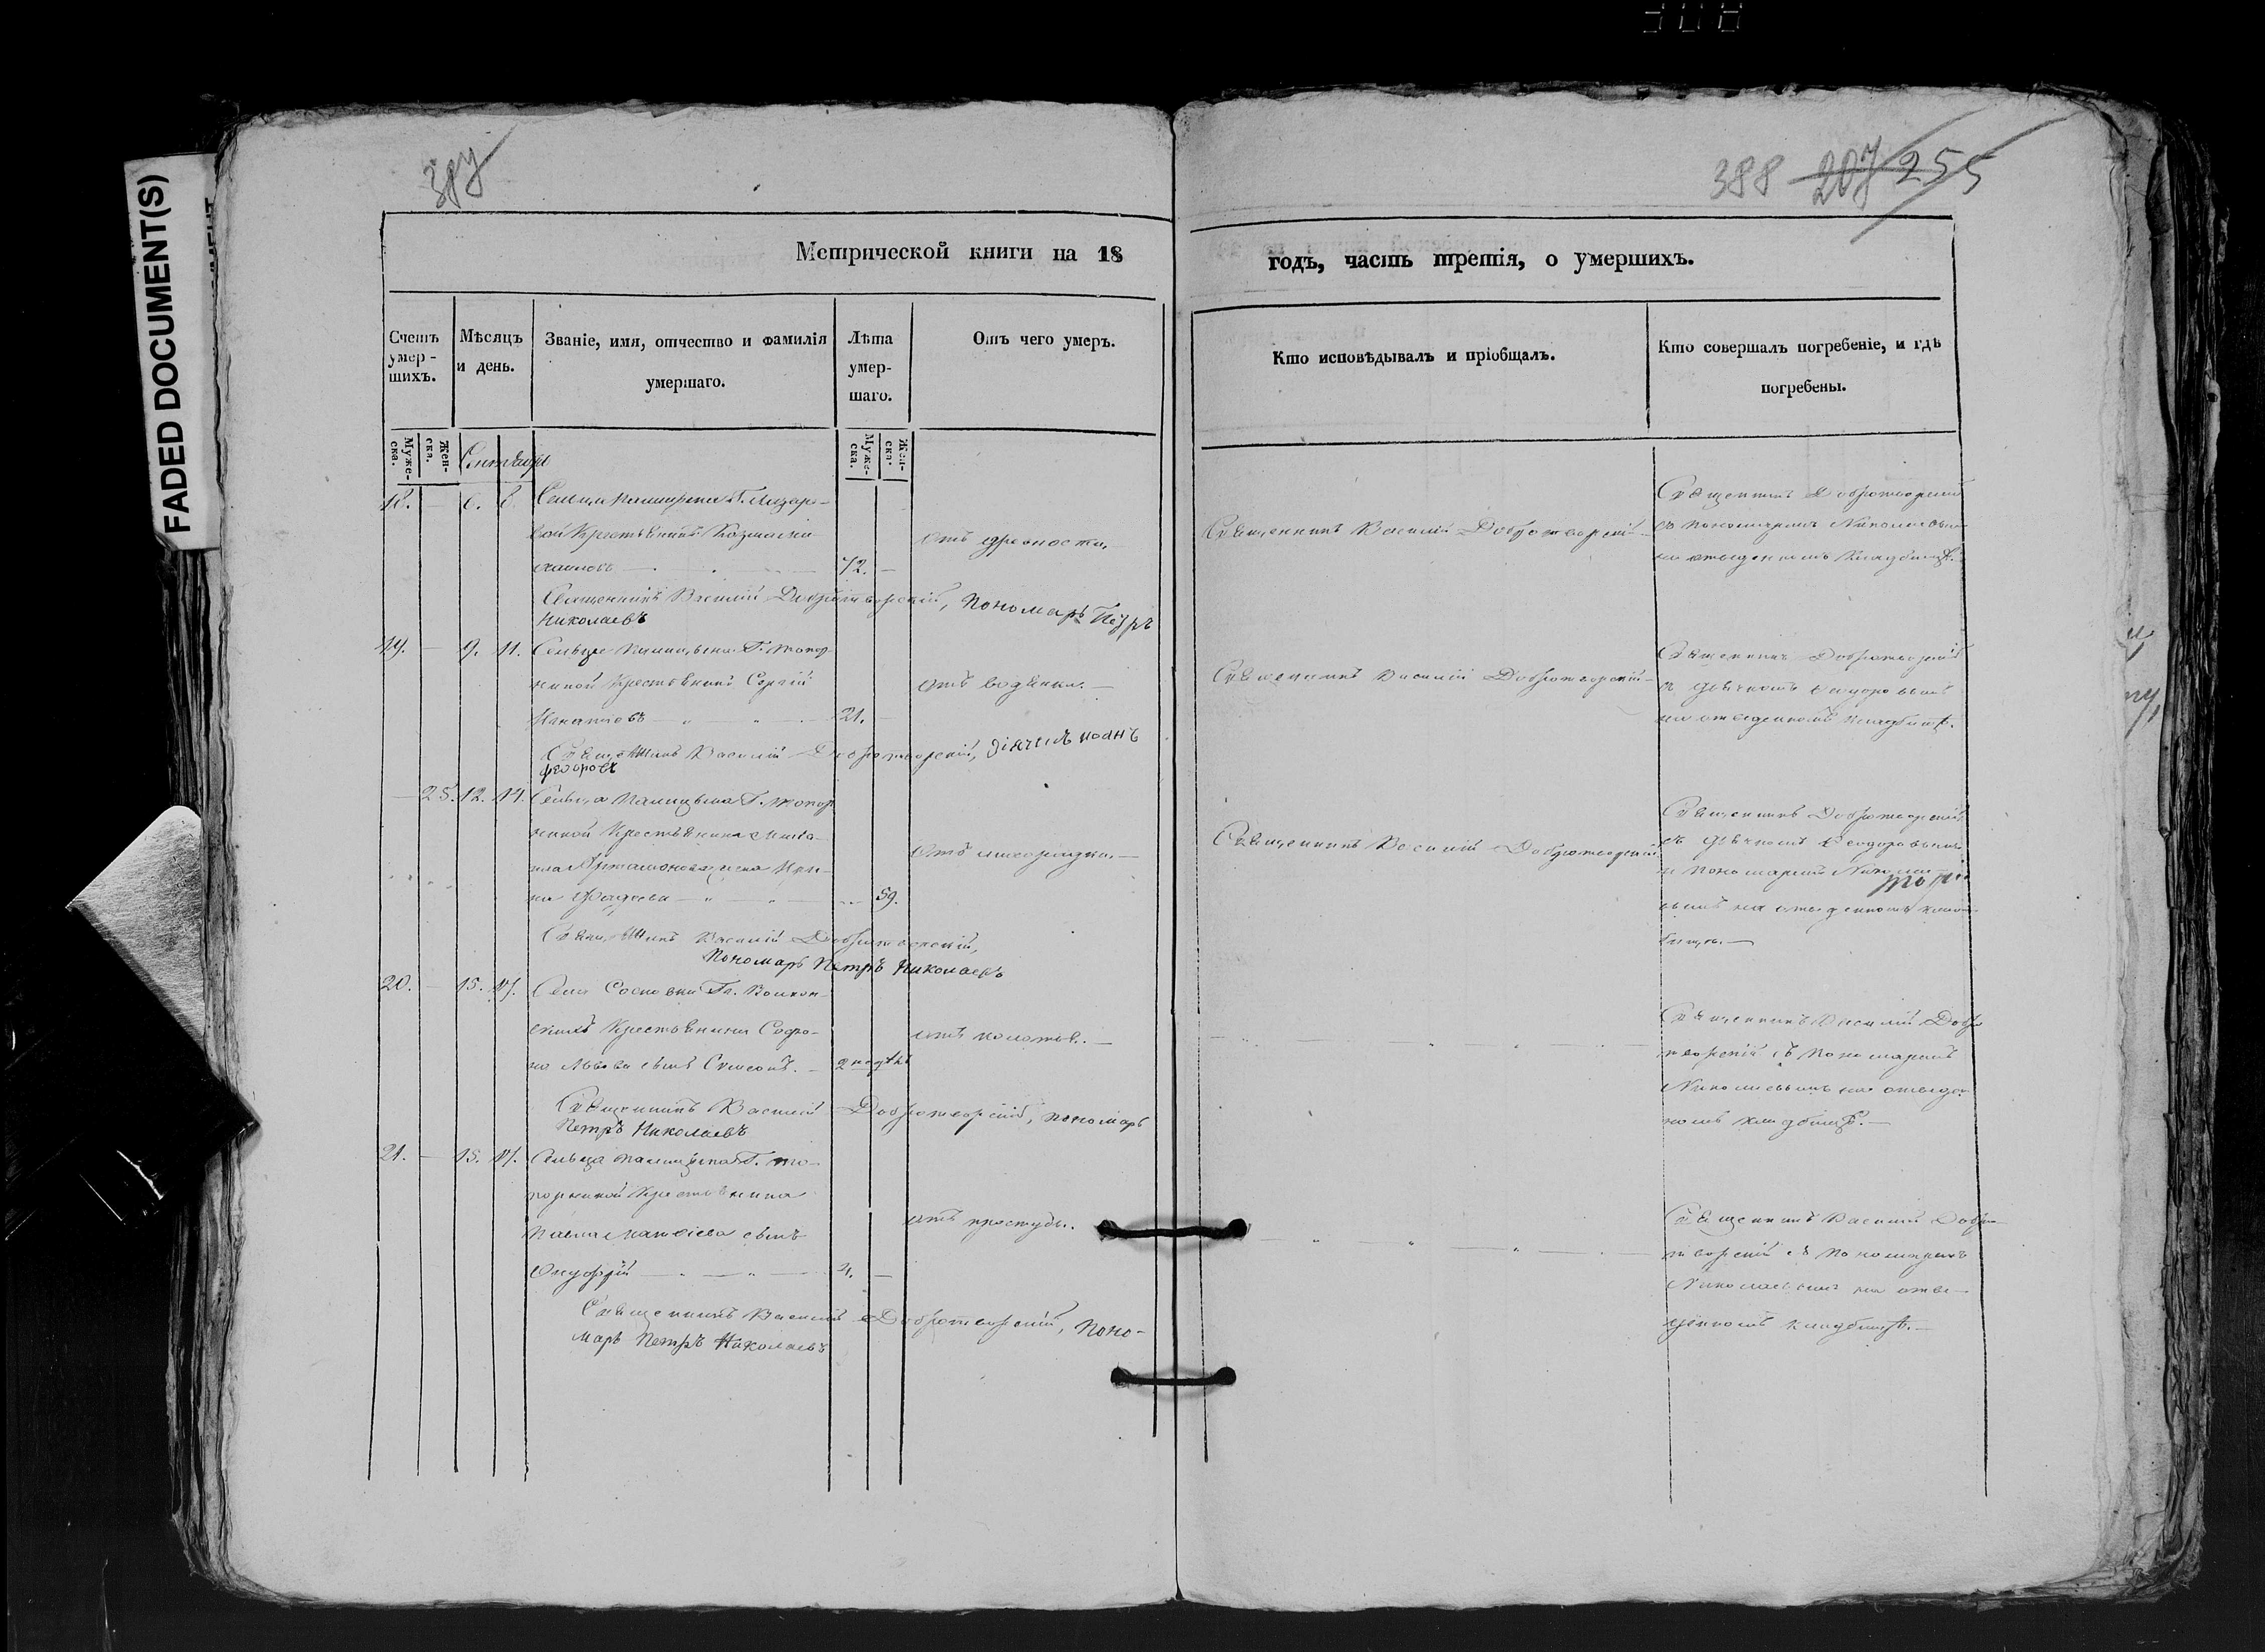 FADED DOCUMENT(S)
388 207 255
Метрической книги на 18
годъ, часть третія, о умершихъ.
Счетъ умер-шихъ.
Мѣсяцъ и день.
Званіе, имя, отчество и фамилія умершаго.
Лѣта умер-шаго.
Отъ чего умеръ.
Кто исповѣдывалъ и пріобщалъ.
Кто совершалъ погребеніе, и гдѣ погребены.
Муже-ска.
Жен-ска.
Муже-ска.
Жен-ска.
Сентябрь
18. — 6. 8. Сельца
вой Крестьянинъ Козма Ми-
хаиловъ — 72. —
отъ древности. —
Священникъ Василій Добротворскій
Священникъ Добротворскій
съ пономаремъ Николаевымъ
на отведенномъ кладбищѣ.
Священникъ Василій Добротворскій, пономарь Петръ
Николаевъ
19. — 9. 11. Сельца
Крестьянинъ Сергій
Игнатовъ — 21. —
отъ водянки. —
Священникъ Василій Добротворскій
Священникъ Добротворскій
съ дьячкомъ Феодоровымъ
на отведенномъ кладбищѣ.
Священникъ Василій Добротворскій, дьячекъ Иоанъ
Федоровъ
— 25. 12. 14. Сельца
Крестьянина Миха-
ила Артамонова жена Ири-
на Фадеева — 59.
отъ лихорадки. —
Священникъ Василій Добротворскій
Священникъ Добротворскій
съ дьячкомъ Феодоровымъ
и пономаремъ Николае-
вымъ на отведенномъ клад-
бищѣ. —
Священникъ Василій Добротворскій,
Пономарь Петръ Николаевъ
20. — 15. 17. Села Сосновки Гг. Волкон-
скихъ Крестьянина Софро-
на Львова сынъ Симеонъ. — 2 недѣль
Священникъ Василій Добро-
творскій съ пономаремъ
Николаевымъ на отведен-
номъ кладбищѣ. —
Священникъ Василій Добротворскій, пономарь
Петръ Николаевъ
21. — 15. 17. Сельца
Крестьянина
Павла Матвіева сынъ
Онуфрій — 4. —
отъ простуды.
Священникъ Василій Добро-
творскій съ пономаремъ
Николаевымъ на отве-
денномъ кладбищѣ. —
Священникъ Василій Добротворскій, поно-
марь Петръ Николаевъ